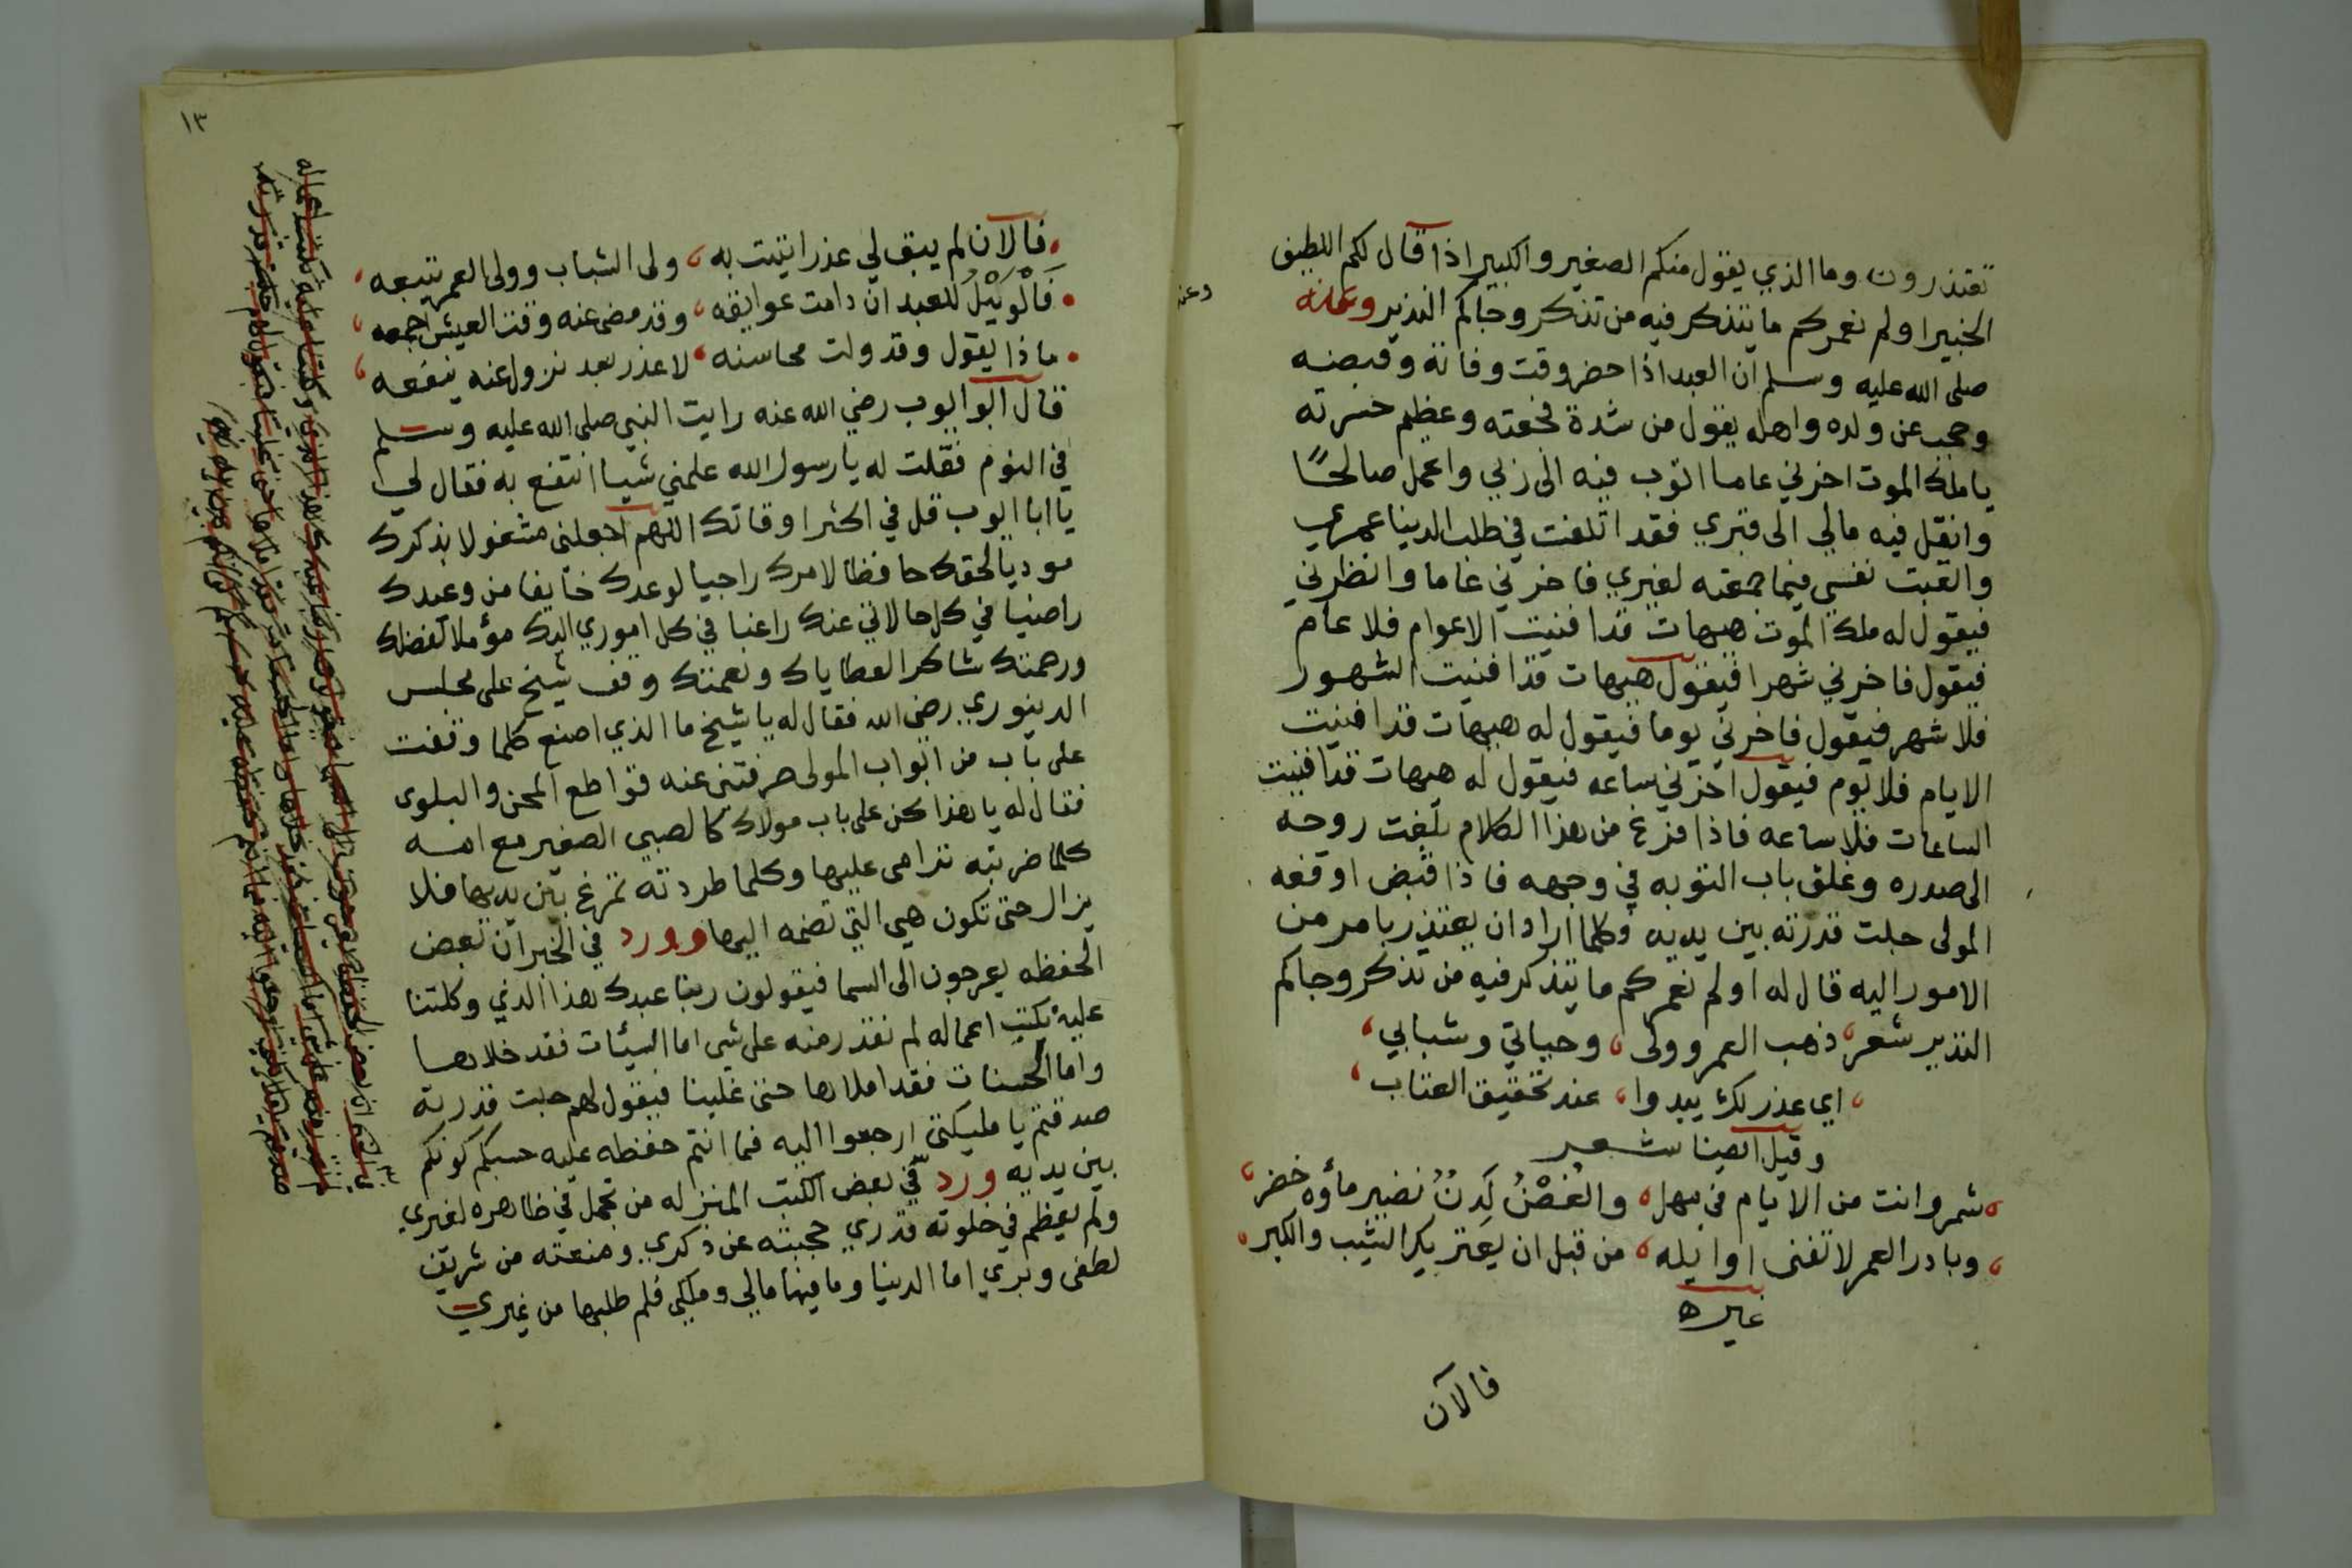 تعتذرون وما الذي يقول منكم الصغير والكبير اذا قال لكم اللطيف
الخبير اولم نعمركم ما يتذكر فيه من تذكر وجاكم النذير وعنه
صلى الله عليه وسلم ان العبد اذا حضر وقت وفاته وقبضه
وحجب عن ولده واهله يقول من شدة فجعته وعظيم حسرته
يا ملك الموت اخرني عاما اتوب فيه الى ربي واعمل صالحًا
وانقل فيه مالي الى قبري فقد اتلفت في طلب الدنيا عمري
واتعبت نفسي فيما جمعته لغيري فاخرني عاما وانظرني
فيقول له ملك الموت هيهات قد افنيت الاعوام فلا عام
فيقول فاخرني شهرا فيقول هيهات قد افنيت الشهور
فلا شهر فيقول فاخرني يوما فيقول له هيهات قد افنيت
الايام فلا يوم فيقول اخرني ساعه فيقول له هيهات قد افنيت
الساعات فلا ساعه فاذا فرغ من هذا الكلام بلغت روحه
الى صدره وغلق باب التوبه في وجهه فاذا قبض اوقفه
المولى جلت قدرته بين يديه وكلما اراد ان يعتذر بامر من
الامور اليه قال له اولم نعمركم ما يتذكر فيه من تذكر وجاكم
النذير شعر، ذهب العمر وولى، وحياتي وشبابي،
، اي عذر لك يبدوا، عند تحقيق العتاب،
وقيل ايضا شعر
، شمر وانت من الايام في مهل، والغُصْنُ لَدنٌ نضير ماؤه خضر،
، وبادر العمر لا تفنى اوايله، من قبل ان يعتريك الشيب والكبر،
غيره
فالآن
١٣
فالآن لم يبق لي عذر اتيت به، ولى الشباب وولى العمر يتبعه،
فَالْوَيْلُ للعبد ان دامت عوايقه، وقد مضى عنه وقت العيش اجمعه،
ماذا يقول وقد ولت محاسنه، لا عذر بعد نزول عنه ينفعه،
قال ابو ايوب رضي الله عنه رايت النبي صلى الله عليه وسلم
في النوم فقلت له يا رسول الله علمني شيا انتفع به فقال لي
يا ابا ايوب قل في اكثر اوقاتك اللهم اجعلني مشغولا بذكرك
موديا لحقك حافظا لامرك راجيا لوعدك خايفا من وعيدك
راضيا في كل حالاتي عنك راغبا في كل اموري اليك مؤملا لفضلك
ورحمتك شاكرا لعطاياك ونعمتك وقف شيخ على مجلس
الدينوري رضي الله فقال له يا شيخ ما الذي اصنع كلما وقفت
على باب من ابواب المولى صرفتني عنه قواطع المحن والبلوى
فقال له يا هذا كن على باب مولاك كالصبي الصغير مع امه
كلما ضربته ترامى عليها وكلما طردته تمرغ بين يديها فلا
يزال حتى تكون هي التي تضمه اليها وورد في الخبر ان بعض
الحفظه يعرجون الى السما فيقولون ربنا عبدك هذا الذي وكلتنا
عليه بكتب اعماله لم نقدر منه على شي اما السيئات فقد خلاها
واما الحسنات فقد املاها حتى غلبنا فيقول لهم جلت قدرته
صدقتم يا مليكتي ارجعوا اليه فما انتم حفظه عليه حسبكم كونكم
بين يديه ورد في بعض الكتب المنزله من تجمل في ظاهره لغيري
ولم يعظم في خلوته قدري حجبته عن ذكري ومنعته من شريف
لطفى وبري اما الدنيا وما فيها مالي وملكي فلم طلبها من غيري